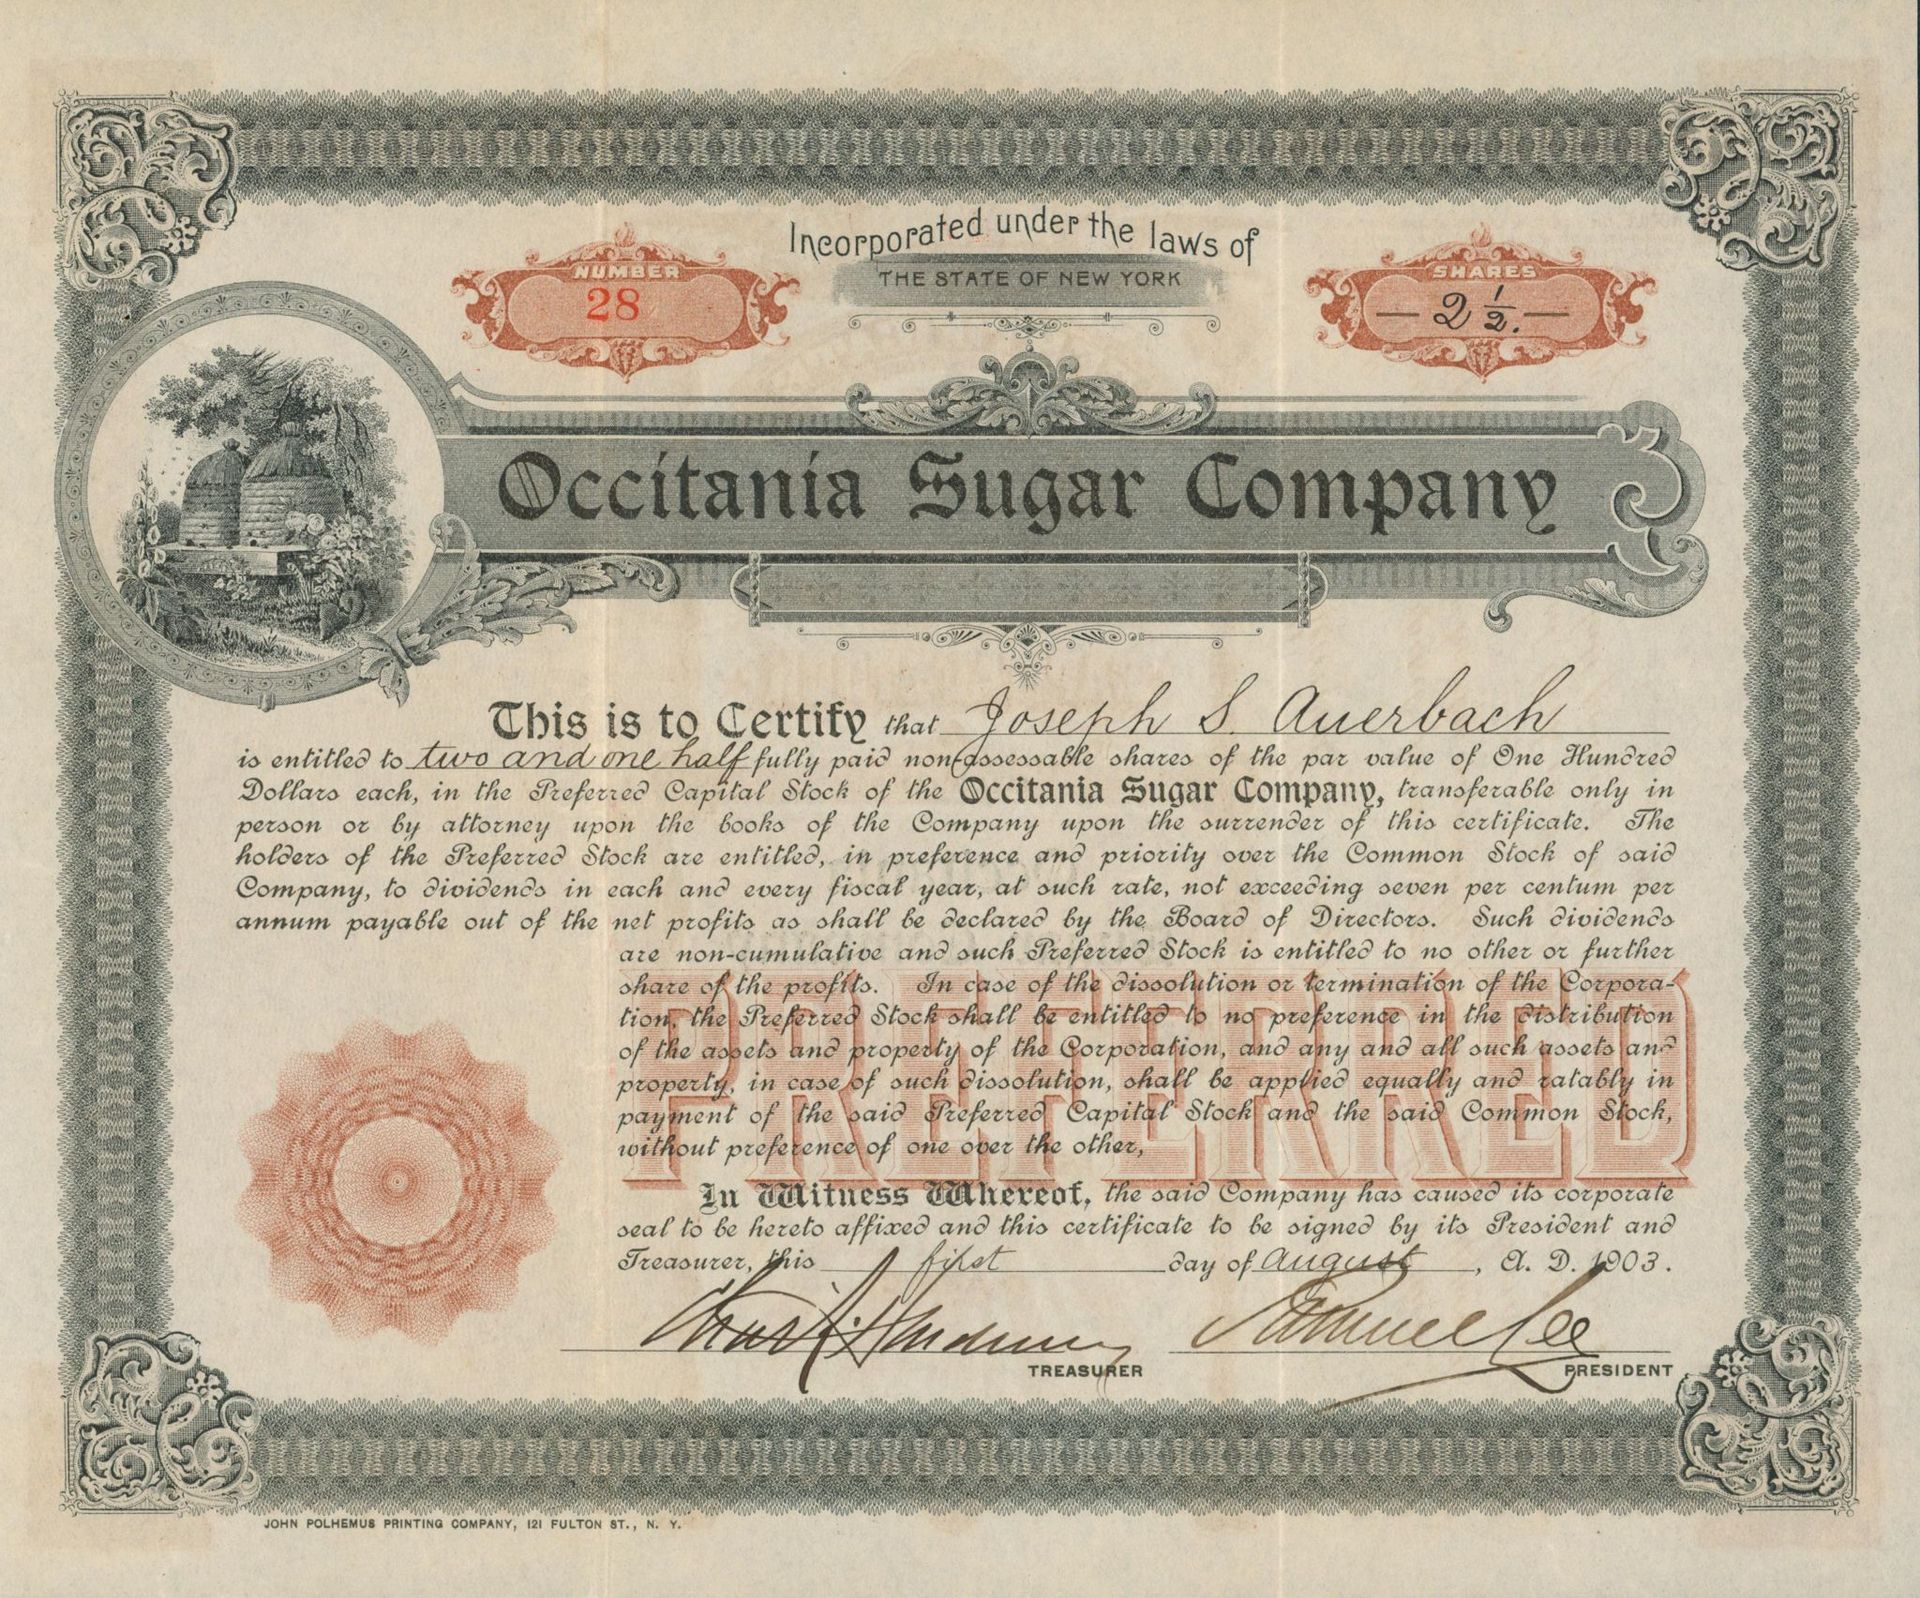 Incorporated under the laws of
THE STATE OF NEW YORK
NUMBER
28
SHARES
— 2 1/2. —
Occitania Sugar Company
This is to Certify that Joseph S. Auerbach
is entitled to two and one half fully paid non-assessable shares of the par value of One Hundred
Dollars each, in the Preferred Capital Stock of the Occitania Sugar Company, transferable only in
person or by attorney upon the books of the Company upon the surrender of this certificate. The
holders of the Preferred Stock are entitled, in preference and priority over the Common Stock of said
Company, to dividends in each and every fiscal year, at such rate, not exceeding seven per centum per
annum payable out of the net profits as shall be declared by the Board of Directors. Such dividends
are non-cumulative and such Preferred Stock is entitled to no other or further
share of the profits. In case of the dissolution or termination of the Corpora-
tion, the Preferred Stock shall be entitled to no preference in the distribution
of the assets and property of the Corporation, and any and all such assets and
property, in case of such dissolution, shall be applied equally and ratably in
payment of the said Preferred Capital Stock and the said Common Stock,
without preference of one over the other,
PREFERRED
In Witness Whereof, the said Company has caused its corporate
seal to be hereto affixed and this certificate to be signed by its President and
Treasurer, this first day of August, A. D. 1903.
Samuel Lee
TREASURER
PRESIDENT
JOHN POLHEMUS PRINTING COMPANY, 121 FULTON ST., N. Y.